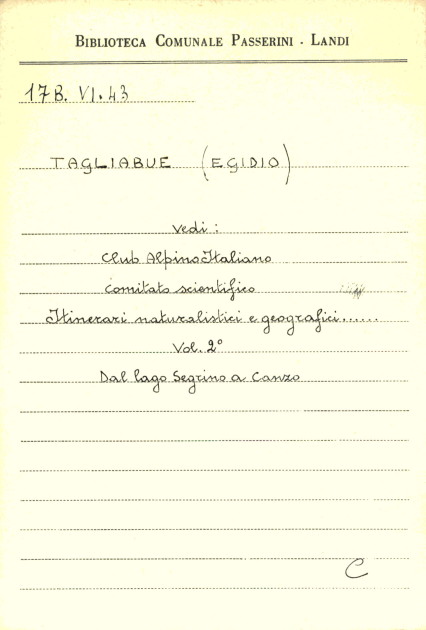 BIBLIOTECA COMUNALE PASSERINI - LANDI
178. VI. 43
TAGLIABUE (EGIDIO)
Vedi :
Club Alpino Italiano
Comitato scientifico
Itinerari naturalistici e geografici......
Vol. 2°
Dal lago Segrino a Canzo
C